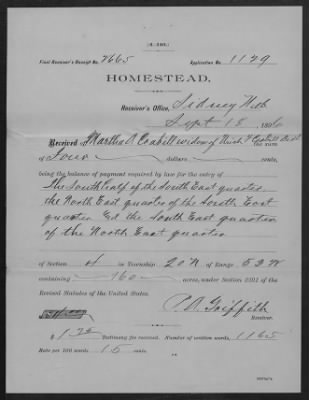 (4-140.)
Final Receiver's Receipt No. 7665 Application No. 1129
HOMESTEAD.
Receiver's Office, Sidney Neb
Sept 18, 1896
Received of Martha A widow of the sum
of Four dollars cents,
being the balance of payment required by law for the entry of
The South half of the South East quarter
the North East quarter of the South East
quarter & the South East quarter
of the North East quarter
of Section 4 in Township 20 N of Range 52 W
containing 160 acres, under Section 2291 of the
Revised Statutes of the United States.
P. A. Griffith
Receiver.
$ 1 75 Testimony fee received. Number of written words, 1165
Rate per 100 words 15 cents.